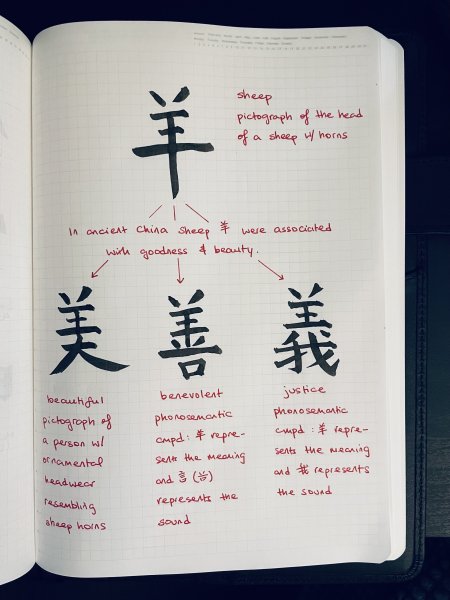 羊
sheep
pictograph of the head
of a sheep w/ horns
In ancient China sheep 羊 were associated
with goodness & beauty.
美
beautiful
pictograph of
a person w/
ornamental
headwear
resembling
sheep horns
善
benevolent
phonosemantic
cmpd : 羊 repre-
sents the meaning
and 言 (訁)
represents the
sound
義
justice
phonosemantic
cmpd : 羊 repre-
sents the meaning
and 我 represents
the sound